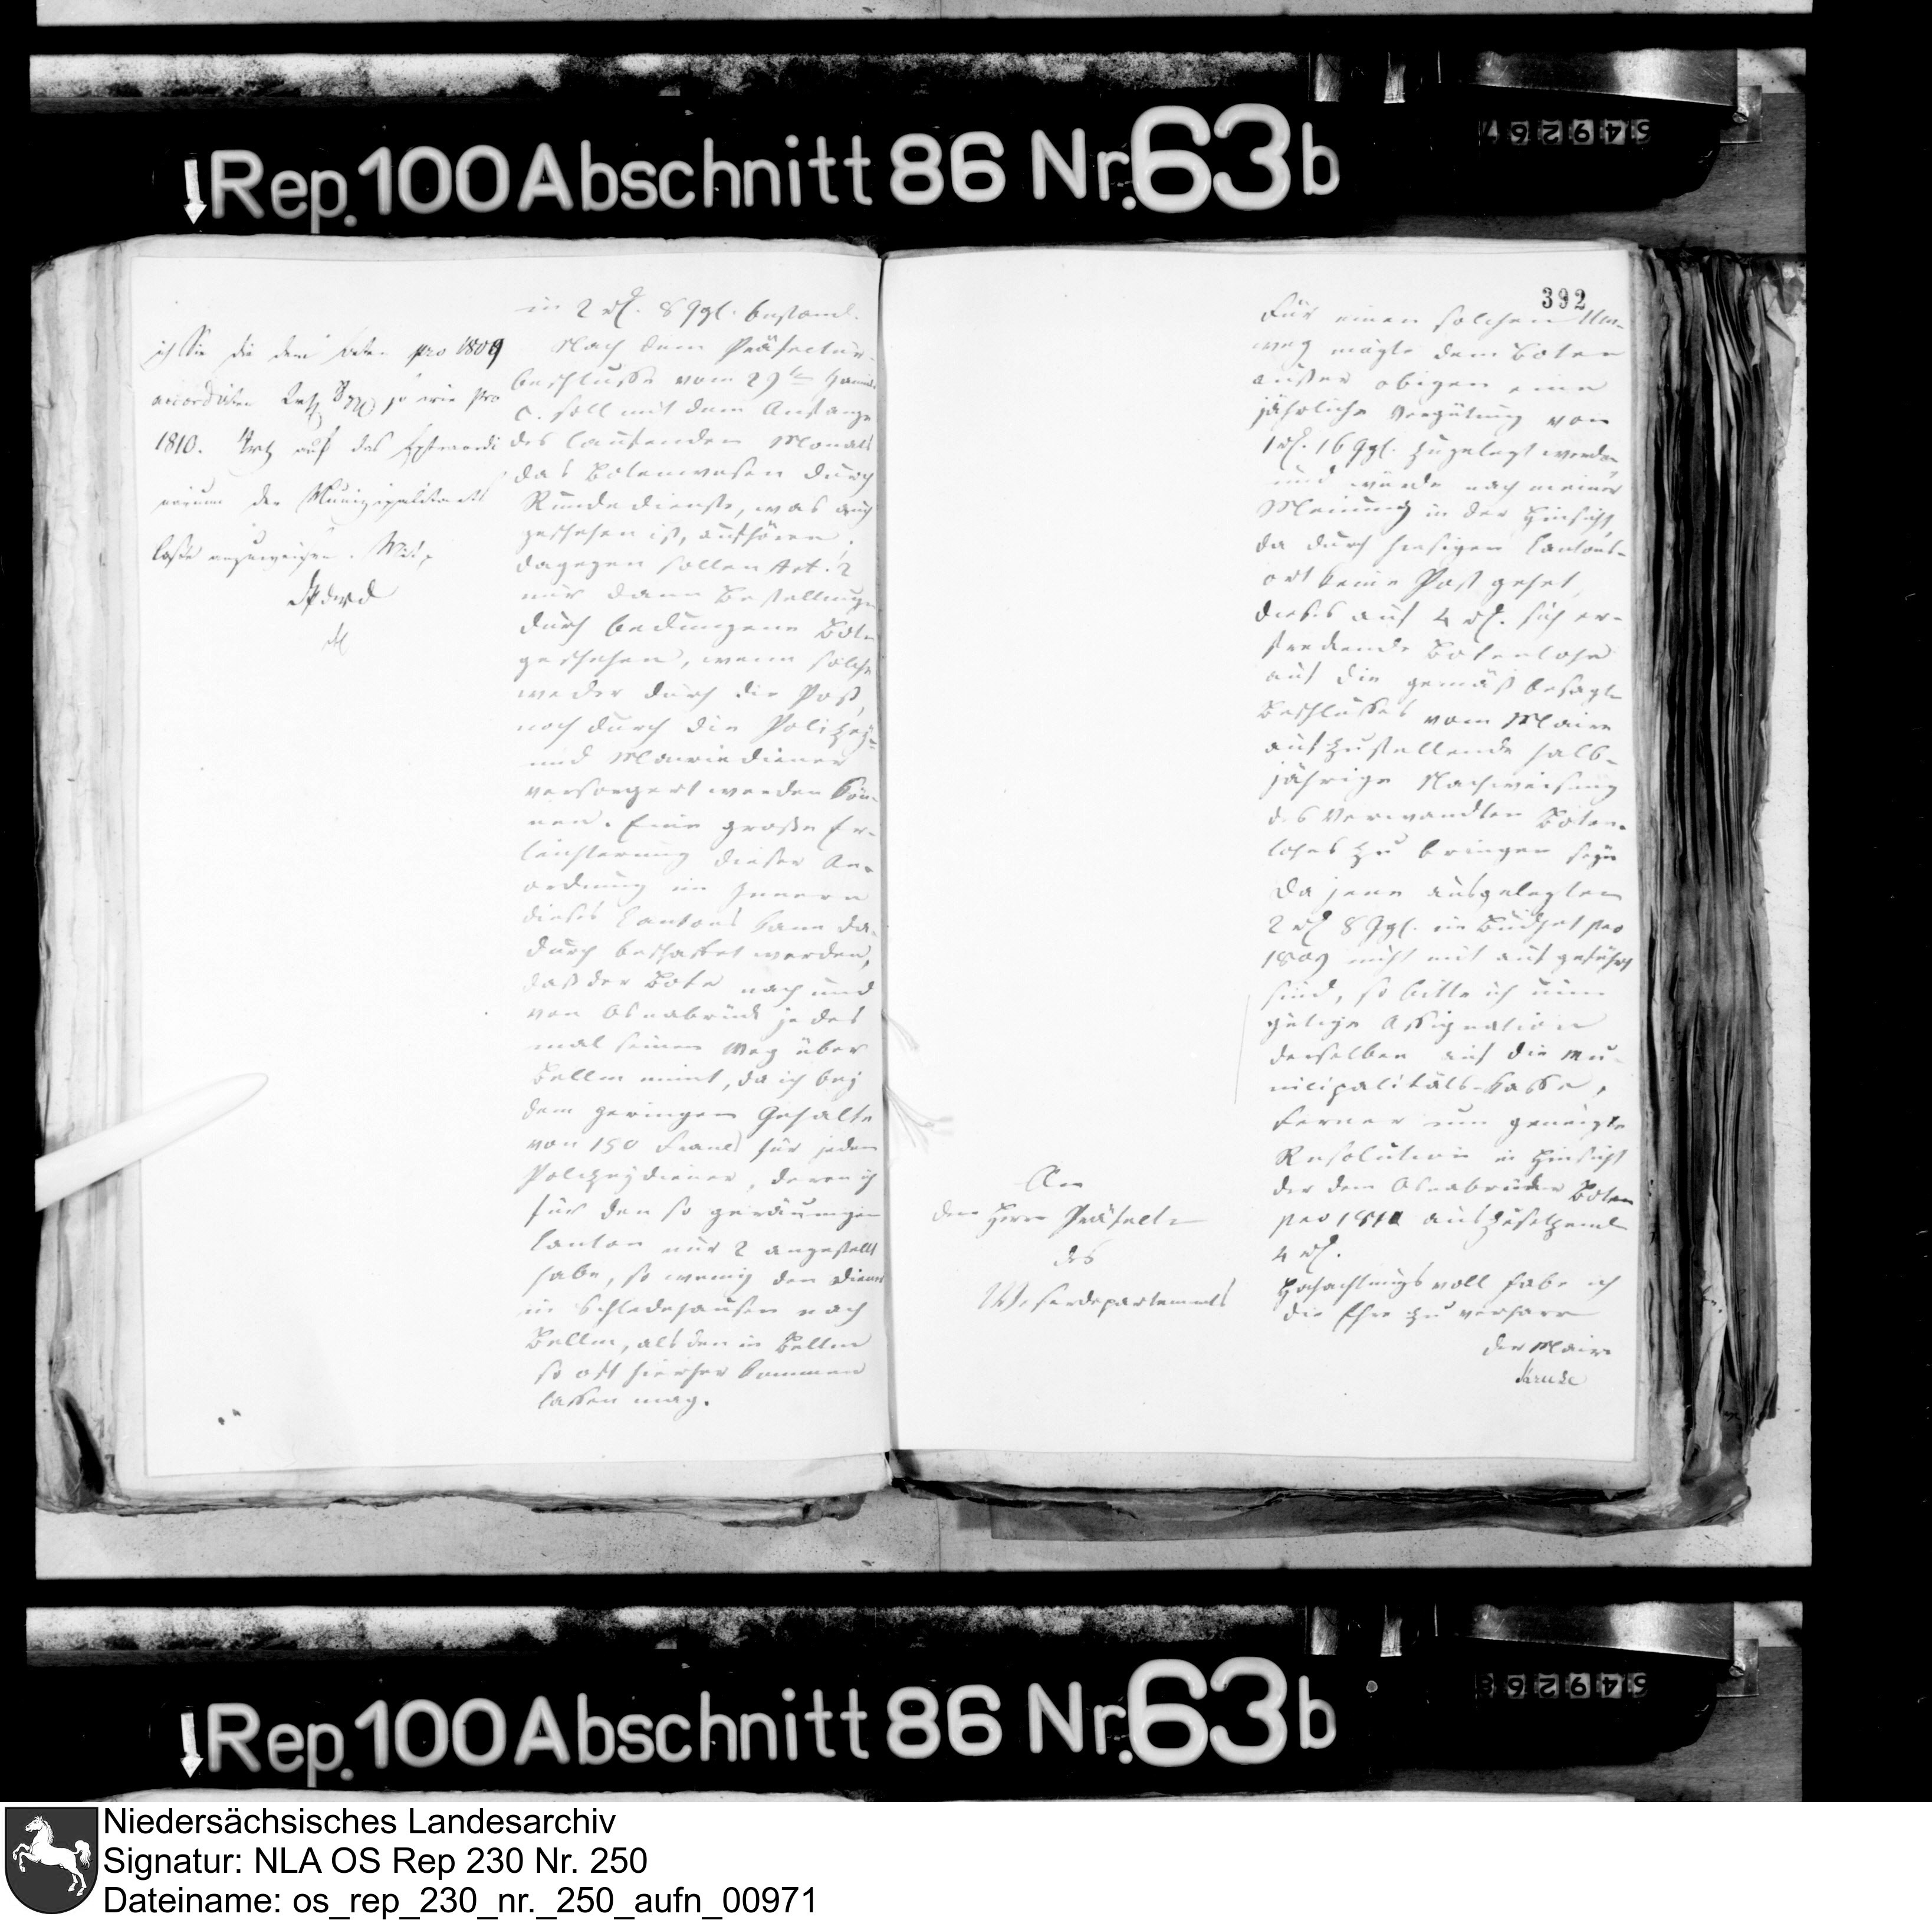 Rep. 100 Abschnitt 86 Nr. 63b
549267
ich Sie die dem Boten pro 1809
accordirten 2 rtl 8 ggl so wie pro
1810. 4 rtl auf das Extraordi
narium der Munizipalitaets
Casse anzuweisen.
in 2 rl. 8 Ggl. bestand.
Nach dem Präfectur-
beschlusse vom 29ten
c. soll mit dem Anfange
des laufenden Monats
das Botenwesen durch
Rundedienste, was auch
geschehen ist, aufhören;
dagegen sollen Art. 2
nur dann Bestellungen
durch bedungene Boten
geschehen, wenn solche
weder durch die Post,
noch durch die Polizey-
und Mairiediener
versorget werden kön-
nen. Eine große Er-
leichterung dieser An-
ordnung im Innern
dieses Cantons kann da-
durch beschaffet werden,
daß der Bote nach und
von Osnabrück jedes
mal seinen Weg über
Bellm nimt, da ich bey
dem geringen Gehalte
von 150 Francs für jeden
Polizeydiener, deren ich
für den so geräumigen
Canton nur 2 angestellt
habe, so wenig den Diener
in Schledehausen nach
Bellm, als den in Bellm
so oft hierher kommen
lassen mag.
392
Für einen solchen Um-
weg mögte dem Boten
außer obigen eine
jährliche Vergütung von
1 rl. 16 Ggl. zugelegt werden,
und würde nach meiner
Meinung in der Hinsicht,
da durch hiesigen Cantons-
ort keine Post gehet,
dieses auf 4 rl. sich er-
streckende Botenlohn
auf die gemäß besagten
Beschlusses vom Maire
aufzustellende halb-
jährige Nachweisung
des verwandten Boten-
lohns zu bringen seyn
Da jene ausgelegten
2 rl 8 Ggl. im Budget pro
1809 nicht mit aufgeführt
sind, so bitte ich um
gütige Assignation
derselben auf die Mu-
nicipalitäts-Casse,
ferner um geneigte
Resolution in Hinsicht
der dem Osnabrücker Boten
pro 1810 auszusetzenden
4 rl.
Hochachtungsvoll habe ich
die Ehre zu verharren
der Maire
Kruse
An
den Herrn Präfecten
des
Weserdepartements
Rep. 100 Abschnitt 86 Nr. 63b
549268
Niedersächsisches Landesarchiv
Signatur: NLA OS Rep 230 Nr. 250
Dateiname: os_rep_230_nr._250_aufn_00971